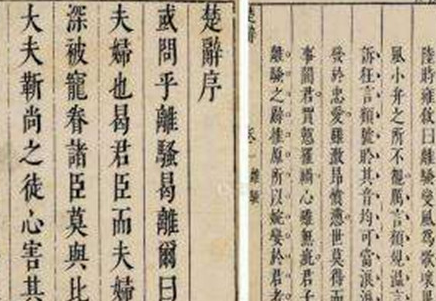 陸時雍敘曰離騷變風
風小弁之所不言頻見溫言
訴狂言類號聆其音均可當淚
發於忠愛雖激昂憤世莫得而
事闇君罹心雖無疵君子
離騷之辭推原所以於君者
楚辭
離騷
楚辭序
或問乎離騷曷離爾曰
夫婦也曷君臣而夫婦
深被寵眷諸臣莫與比
大夫靳尚之徒心害其